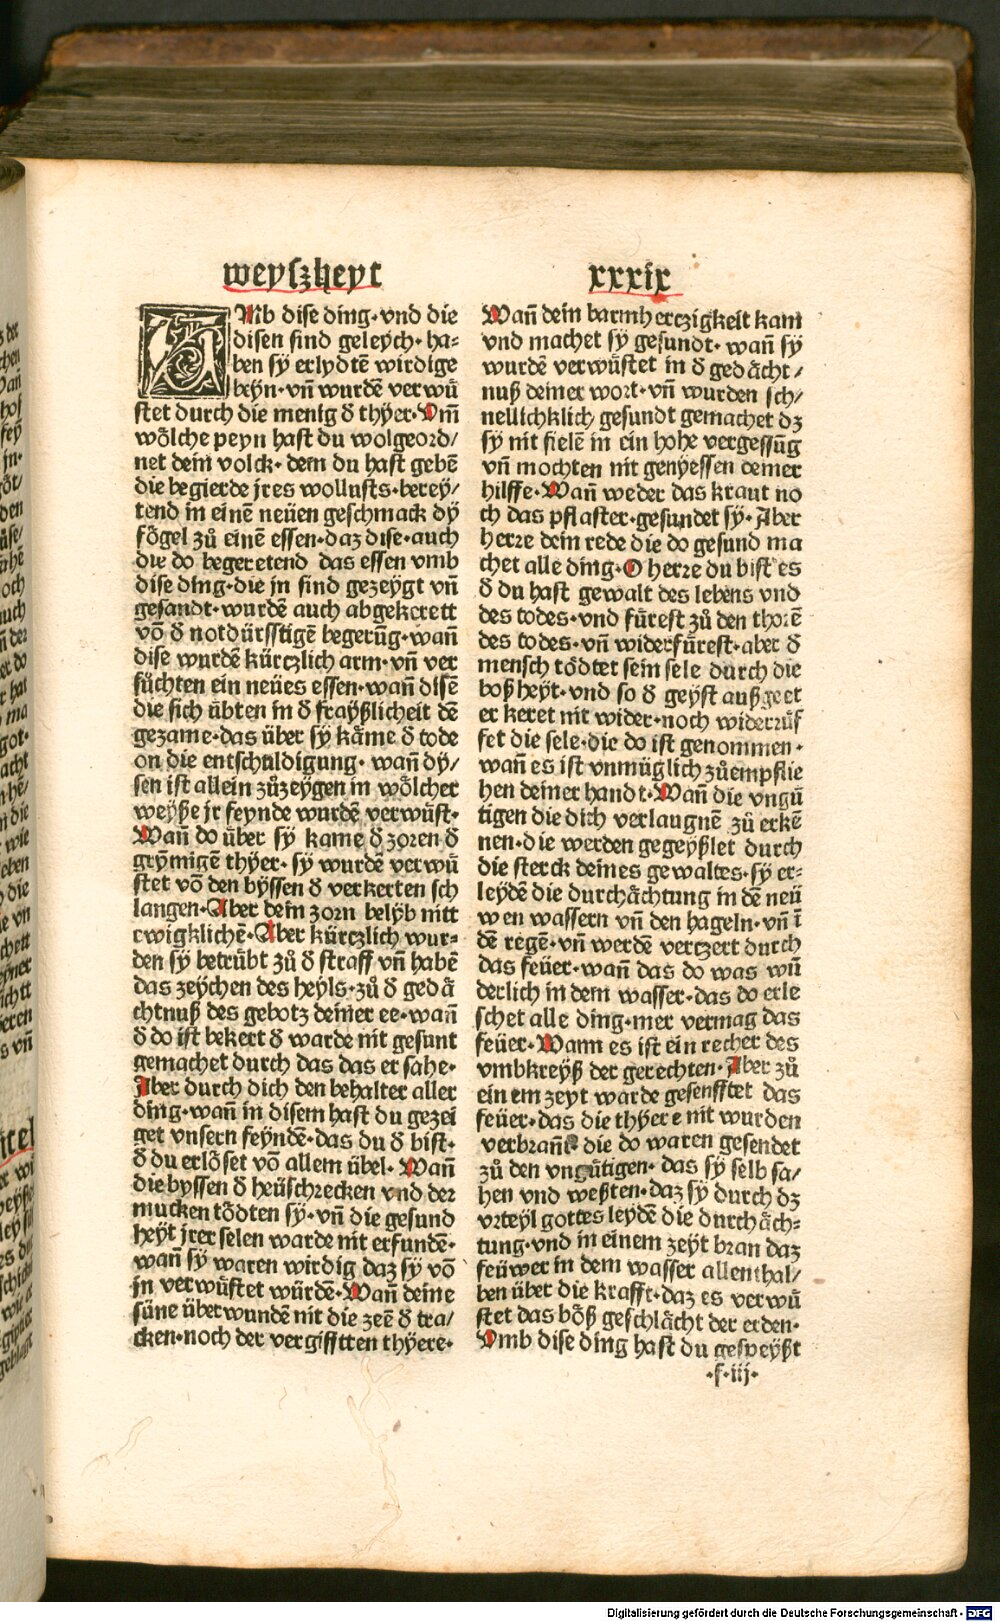 weyſzheyt
xxxix
VMb diſe ding·vnd die
diſen ſind geleÿch·ha⸗
ben ſy erlydtē wirdige
beÿn·vn̄ wurdē verwuͤ
ſtet durch die menig d̄ thÿer·Vm̄
woͤlche peyn haſt du wolgeord/
net dein volck·dem du haſt gebē
die begierde jres wolluſts·bereÿ/
tend in einē neuͤen geſchmack dÿ
foͤgel zuͦ einē eſſen·daz diſe·auch
die do begeretend das eſſen vmb
diſe ding·die jn ſind gezeÿgt vn̄
geſandt·wurdē auch abgekerett
vō d̄ notduͤrfftigē begeruͤg·wan̄
diſe wurdē kuͤrczlich arm·vn̄ ver
ſuͦchten ein neuͤes eſſen·wan̄ diſē
die ſich uͤbten in d̄ frayßlicheit dē
gezame·das uͤber ſy kaͤme d̄ tode
on die entſchuldigung·wan̄ dÿ/
ſen iſt allein zuͦzeÿgen in woͤlcher
weÿße jr feynde wurdē verwuͤſt·
Wan̄ do uͤber ſy kame d̄ zoren d̄
grÿmigē thÿer·ſy wurdē verwuͤ
ſtet vō den bÿſſen d̄ verkerten ſch
langen·Aber dein zorn belÿb nitt
ewigklichē·Aber kuͤrczlich wur⸗
den ſy betruͤbt zuͦ d̄ ſtraff vn̄ habē
das zeÿchen des heÿls·zuͦ d̄ gedaͤ
chtnuß des gebotz deiner ee·wan̄
d̄ do iſt bekert d̄ warde nit geſunt
gemachet durch das das er ſahe·
Aber durch dich den behalter aller
ding·wan̄ in diſem haſt du gezei
get vnſern feÿndē·das du d̄ biſt·
d̄ du erloͤſet vō allem uͤbel·Wan̄
die byſſen d̄ heuͤſchrecken vnd der
mucken toͤdten ſy·vn̄ die geſund
heÿt jrer ſelen warde nit erfundē·
wan̄ ſy waren wirdig daz ſy vō
jn verwuͤſtet wuͤrdē·Wan̄ deine
ſuͤne uͤberwundē nit die zeē d̄ tra/
cken·noch der vergifftten thÿere·
Wan̄ dein barmherczigkeit kam
vnd machet ſy geſundt·wan̄ ſy
wurdē verwuͤſtet in d̄ gedaͤcht/
nuß deiner wort·vn̄ wurden ſch/
nellichklich geſundt gemachet dz
ſy nit fielē in ein hohe vergeſſūg
vn̄ mochten nit genyeſſen deiner
hilffe·Wan̄ weder das kraut no
ch das pflaſter·geſundet ſy·Aber
herre dein rede die do geſund ma
chet alle ding·O herre du biſt es
d̄ du haſt gewalt des lebens vnd
des todes·vnd fuͤreſt zuͦ den thorē
des todes·vn̄ widerfuͤreſt·aber d̄
menſch toͤdtet ſein ſele durch die
boßheÿt·vnd ſo d̄ geÿſt außgeet
er keret nit wider·noch widerruͤf
fet die ſele·die do iſt genommen·
wan̄ es iſt vnmuͤglich zuͦempflie
hen deiner handt·Wan̄ die vnguͤ
tigen die dich verlaugnē zuͦ erkē
nen·die werden gegeÿßlet durch
die ſterck deines gewaltes·ſy er⸗
leydē die durchaͤchtung in dē neuͤ
wen waſſern vn̄ den hageln·vn̄ ī
dē regē·vn̄ werdē verczert durch
das feuͤer·wan̄ das do was wū
derlich in dem waſſer·das do erle
ſchet alle ding·mer vermag das
feuͤer·Wann es iſt ein recher des
vmbkreyß der gerechten·Aber zuͦ
einem zeyt warde geſenfftet das
feuͤer·das die thÿere nit wurden
verbran̄t die do waren geſendet
zuͦ den vnguͤtigen·das ſy ſelb ſa/
hen vnd weßten·daz ſy durch dz
vrteyl gottes leydē die durchaͤch⸗
tung·vnd in einem zeyt bran daz
feuͤwer in dem waſſer allenthal/
ben uͤber die krafft·daz es verwuͤ
ſtet das boͤß geſchlaͤcht der erden·
Vmb diſe ding haſt du geſpeÿßt
·f·iij·
Digitalisierung gefördert durch die Deutsche Forschungsgemeinschaft - DFG